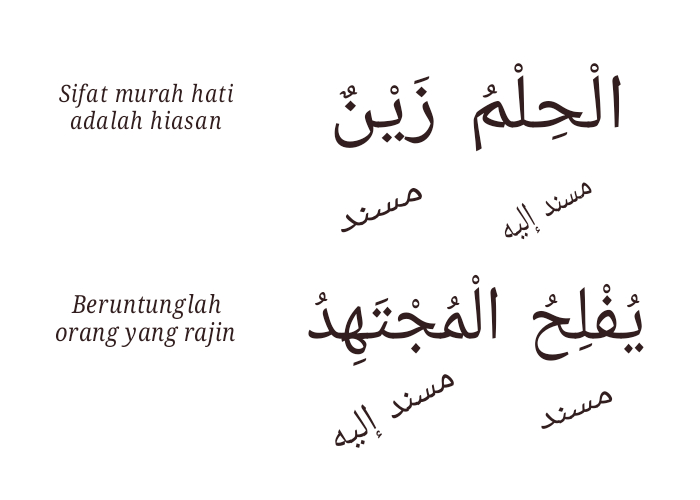 Sifat murah hati
adalah hiasan
الْحِلْمُ زَيْنٌ
مسند إليه
مسند
Beruntunglah
orang yang rajin
يُفْلِحُ الْمُجْتَهِدُ
مسند
مسند إليه